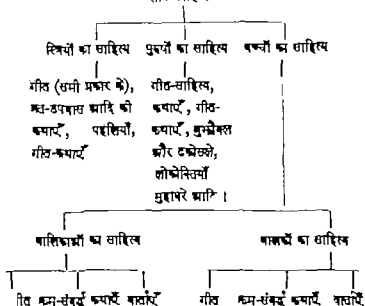 स्त्रियों का साहित्य पुरुषों का साहित्य बच्चों का साहित्य
गीत (सभी प्रकार के), गीत-साहित्य,
व्रत-उपवास आदि की कथाएँ, गीत-
कथाएँ, पहेलियाँ, कथाएँ, बुझौवल
गीत-कथाएँ और ढकोसले,
लोकोक्तियाँ
मुहावरे आदि ।
बालिकाओं का साहित्य बालकों का साहित्य
गीत क्रम-संबद्ध कथाएँ वार्ताएँ गीत क्रम-संबद्ध कथाएँ वार्ताएँ